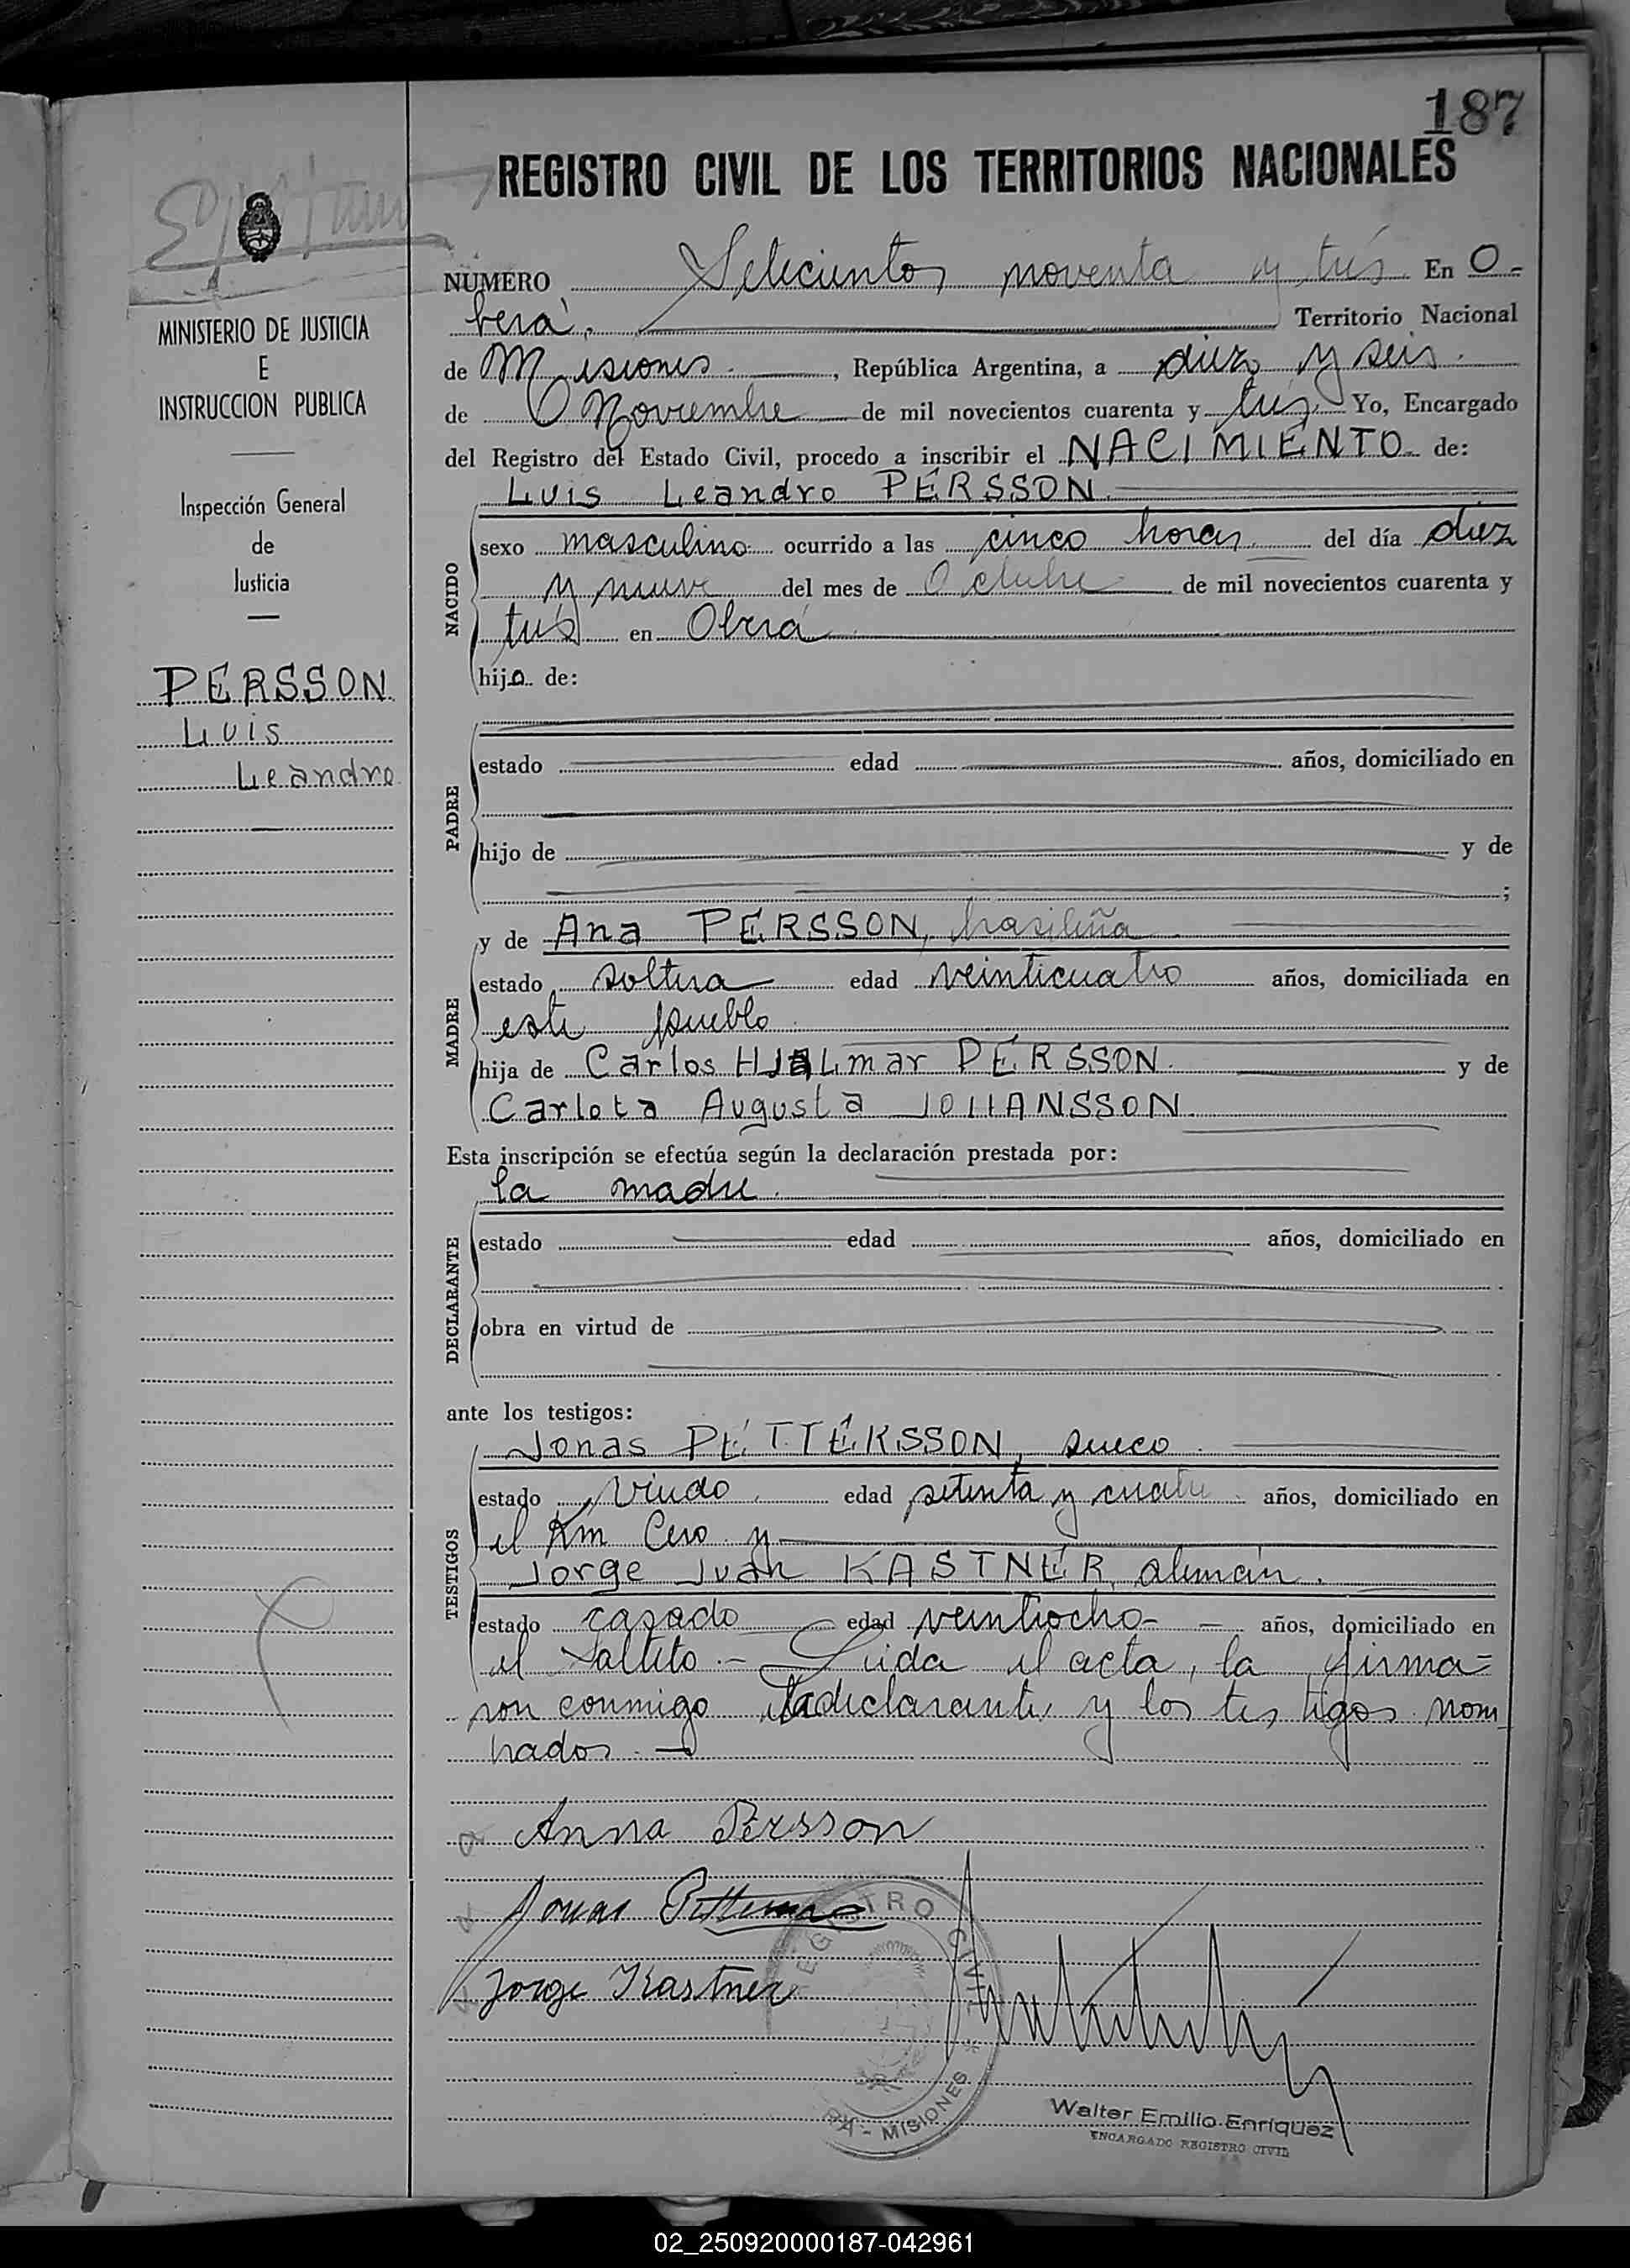 187
REGISTRO CIVIL DE LOS TERRITORIOS NACIONALES
NUMERO Setecientos noventa y trés En O-
berá. Territorio Nacional
de Misiones. , República Argentina, a diez y seis.
de Noviembre de mil novecientos cuarenta y trés. Yo, Encargado
del Registro del Estado Civil, procedo a inscribir el NACIMIENTO de:
Luis Leandro PERSSON.
NACIDO
sexo masculino ocurrido a las cinco horas del día diez
y nueve del mes de Octubre de mil novecientos cuarenta y
trés en Oberá
hijo de:
PADRE
estado edad años, domiciliado en
hijo de y de
;
y de Ana PERSSON, brasileña
MADRE
estado soltera edad veinticuatro años, domiciliada en
este pueblo
hija de Carlos HJALmar PERSSON. y de
Carlota Augusta JOHANSSON.
Esta inscripción se efectúa según la declaración prestada por:
la madre.
DECLARANTE
estado edad años, domiciliado en
obra en virtud de
ante los testigos:
TESTIGOS
Jonas PETTERSSON, sueco.
estado viudo. edad setenta y cuatro años, domiciliado en
el Km Cero y
Jorge Juan KASTNER, alemán.
estado casado edad veintiocho- — años, domiciliado en
el Saltito.- Leida el acta, la firma=
ron conmigo la declarante y los testigos nom
brados.
Anna Persson
Jonas Pettersson
Jorge Kastner
REGISTRO CIVIL
MISIONES
Walter Emilio Enriquez
ENCARGADO REGISTRO CIVIL
MINISTERIO DE JUSTICIA
E
INSTRUCCION PUBLICA
Inspección General
de
Justicia
PERSSON
Luis
Leandro
02_250920000187-042961